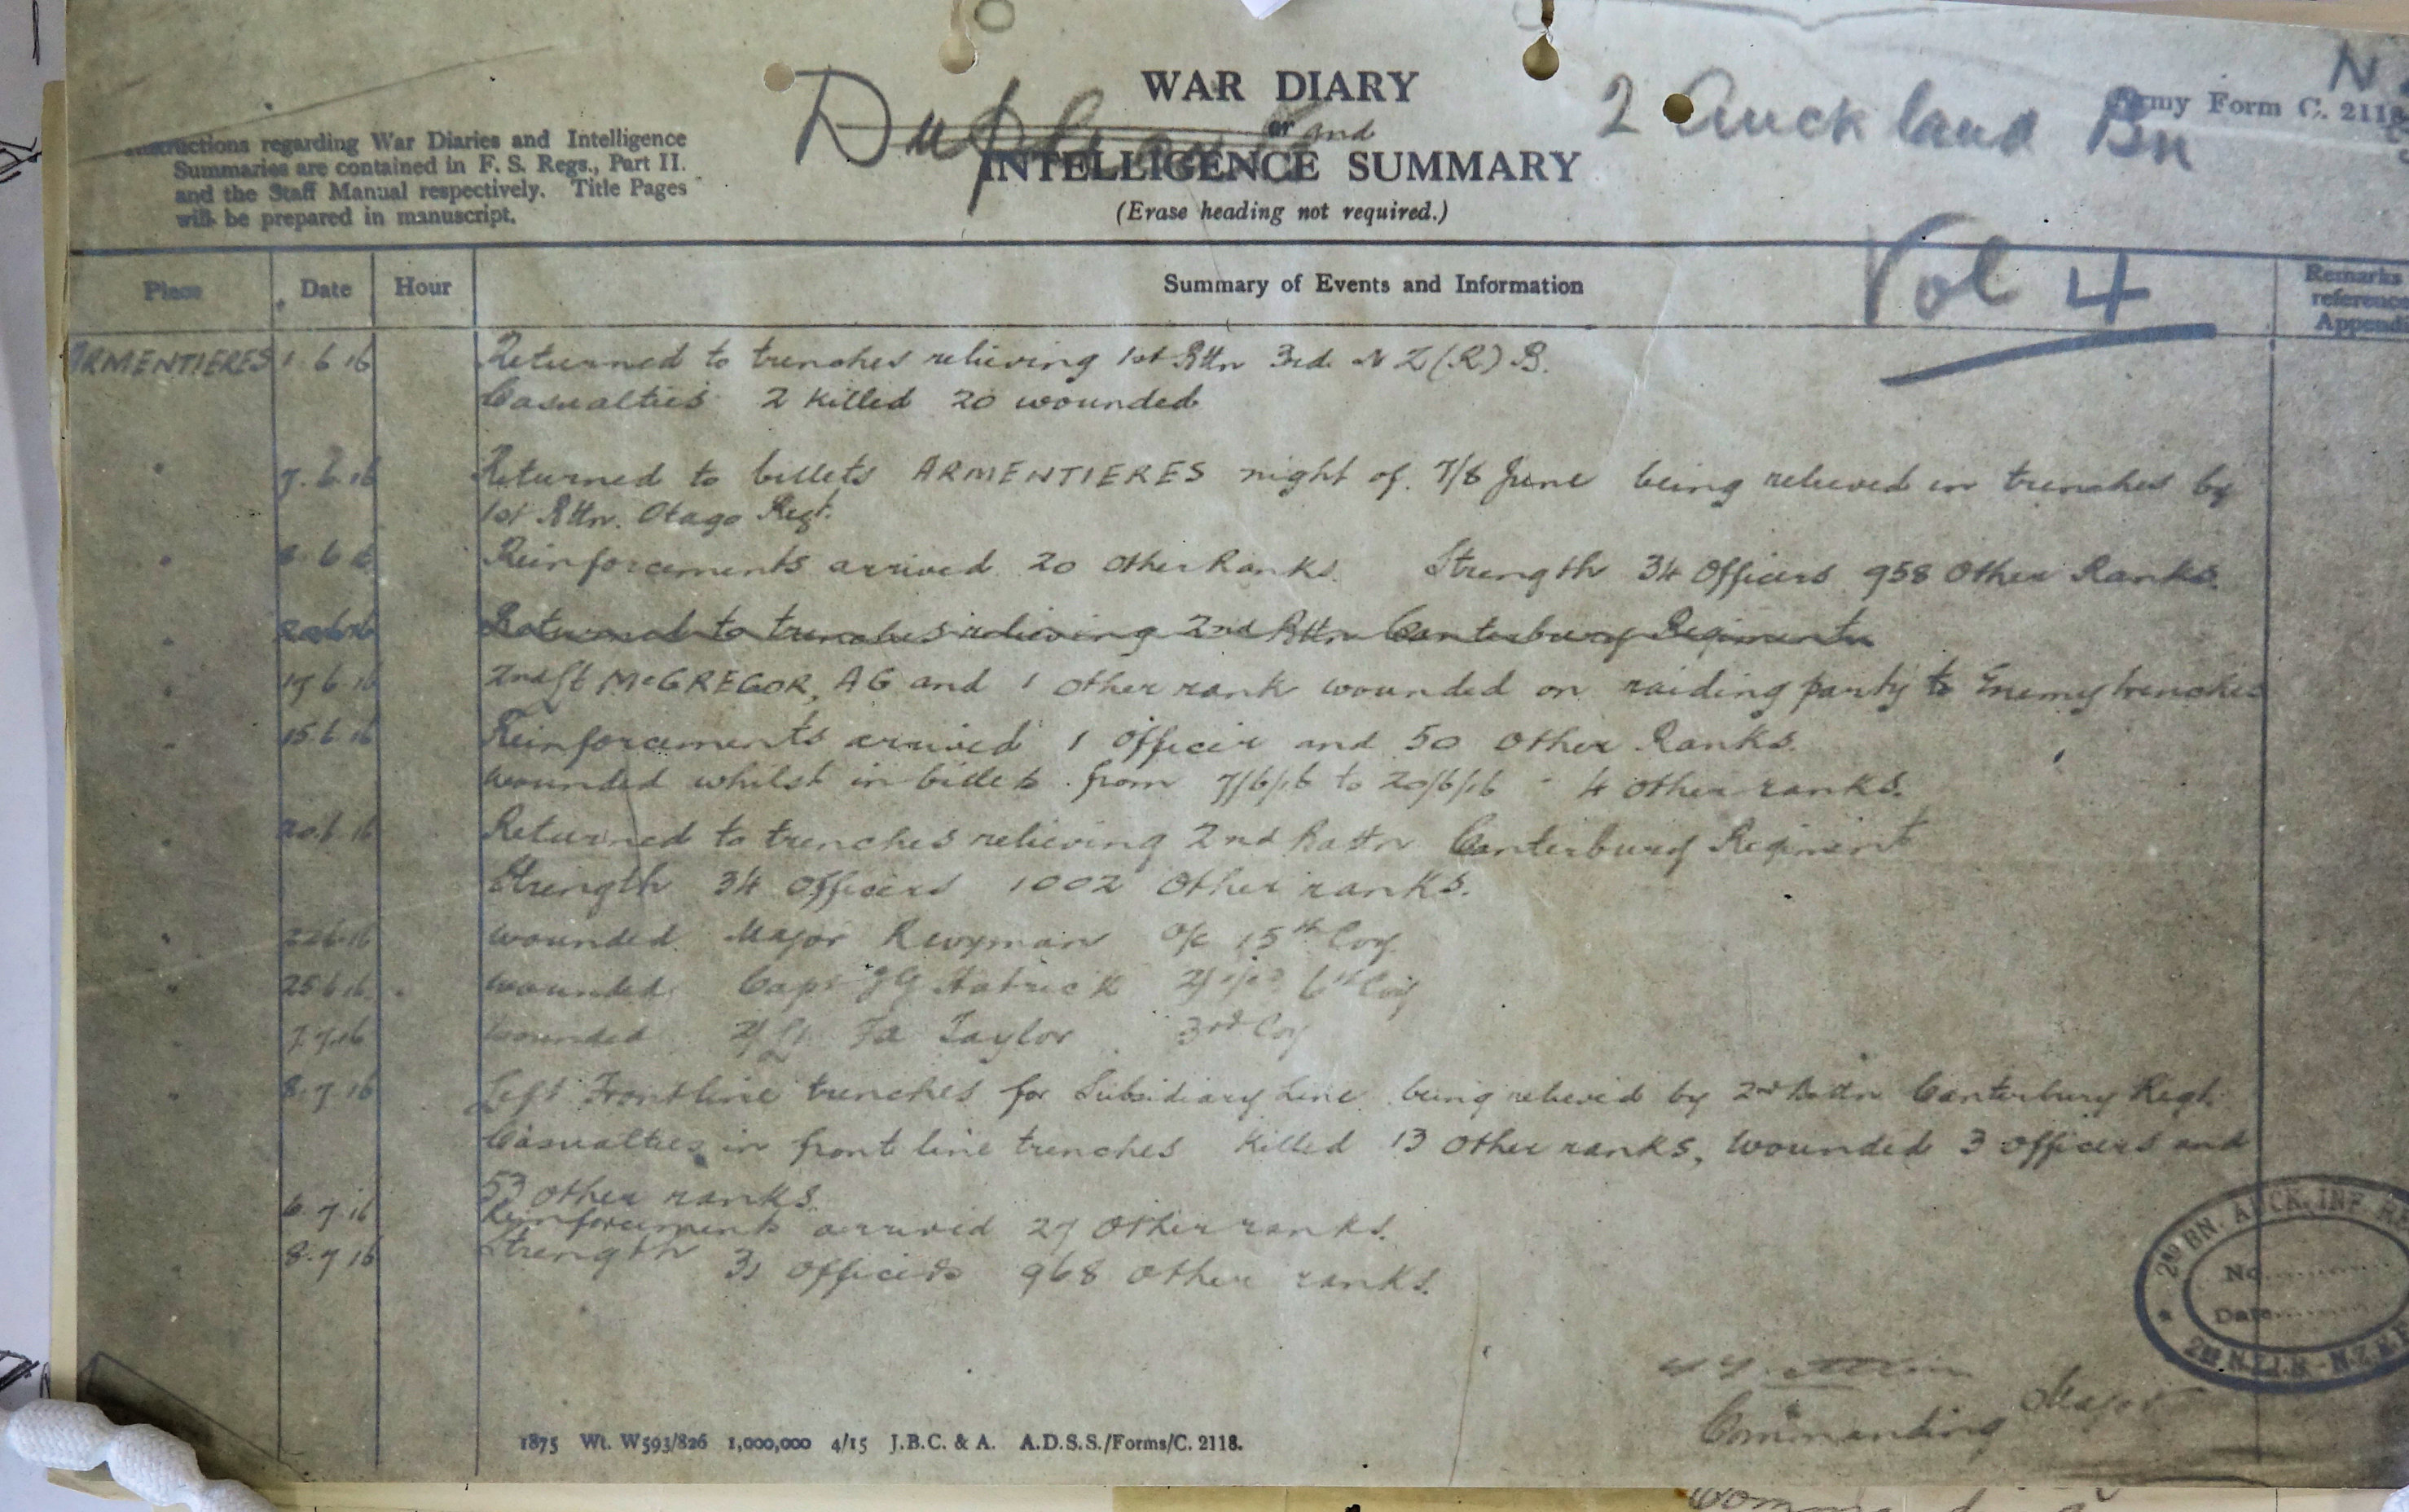 N
WAR DIARY
Duplicate
or and
2 Auckland Bn
Army Form C. 2118
INTELLIGENCE SUMMARY
(Erase heading not required.)
Instructions regarding War Diaries and Intelligence
Summaries are contained in F. S. Regs., Part II.
and the Staff Manual respectively. Title Pages
will be prepared in manuscript.
Vol 4
Place Date Hour Summary of Events and Information Remarks
reference
Appendi
ARMENTIERES 1.6.16 Returned to trenches relieving 1st Bttn 3rd. N Z (R) B.
Casualties 2 killed 20 wounded
" 7.6.16 Returned to billets ARMENTIERES night of 7/8 June being relieved in trenches by
1st Bttn. Otago Regt.
" Reinforcements arrived 20 Other Ranks. Strength 34 Officers 958 Other Ranks.
" 20.6.16 Returned to trenches relieving 2nd Bttn Canterbury Regiment
" 17.6.16 2nd Lt McGREGOR, AG and 1 other rank wounded on raiding party to Enemy trenches
" 15.6.16 Reinforcements arrived 1 Officer and 50 Other Ranks.
Wounded whilst in billets from 7/6/16 to 20/6/16 - 4 other ranks.
" 20.6.16 Returned to trenches relieving 2nd Battn Canterbury Regiment
Strength 34 Officers 1002 Other ranks.
" 22.6.16 Wounded Major R Wyman o/c 15th Coy
" 25.6.16 Wounded Capt JG Hatrick 6th Coy
" 7.7.16 Wounded 2/Lt Taylor 3rd Coy
" 8.7.16 Left Frontline trenches for Subsidiary Line being relieved by 2nd Battn Canterbury Regt.
Casualties in front line trenches Killed 13 Other ranks, Wounded 3 Officers and
53 other ranks.
6.7.16 Reinforcements arrived 27 Other ranks.
" 8.7.16 Strength 31 Officers 968 Other ranks.
2ND BN. AUCK. INF. RE
No.
Date
2ND N.Z.I.B - N.Z.E.F
Major
Commanding
1875 Wt. W593/826 1,000,000 4/15 J.B.C. & A. A.D.S.S./Forms/C. 2118.